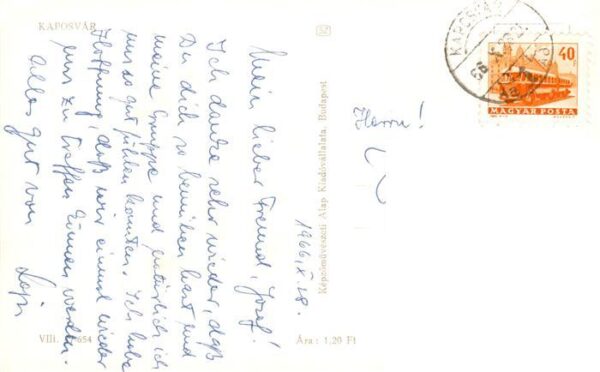 KAPOSVÁR
Mein lieber Freund, Josef!
Ich danke sehr wieder, daß
Du dich so bemühen hast, und
meine Gruppe und natürlich ich
uns so gut fühlen konnten. Ich habe
Hoffnung, daß wir einmal wieder
uns zu treffen können werden.
Alles gut von
1966.X.28.
VIII.
654
Képzőművészeti Alap Kiadóvállalata, Budapest
Ára: 1,20 Ft
Herrn!
KAPOSVÁR
66 X
40
MAGYAR POSTA